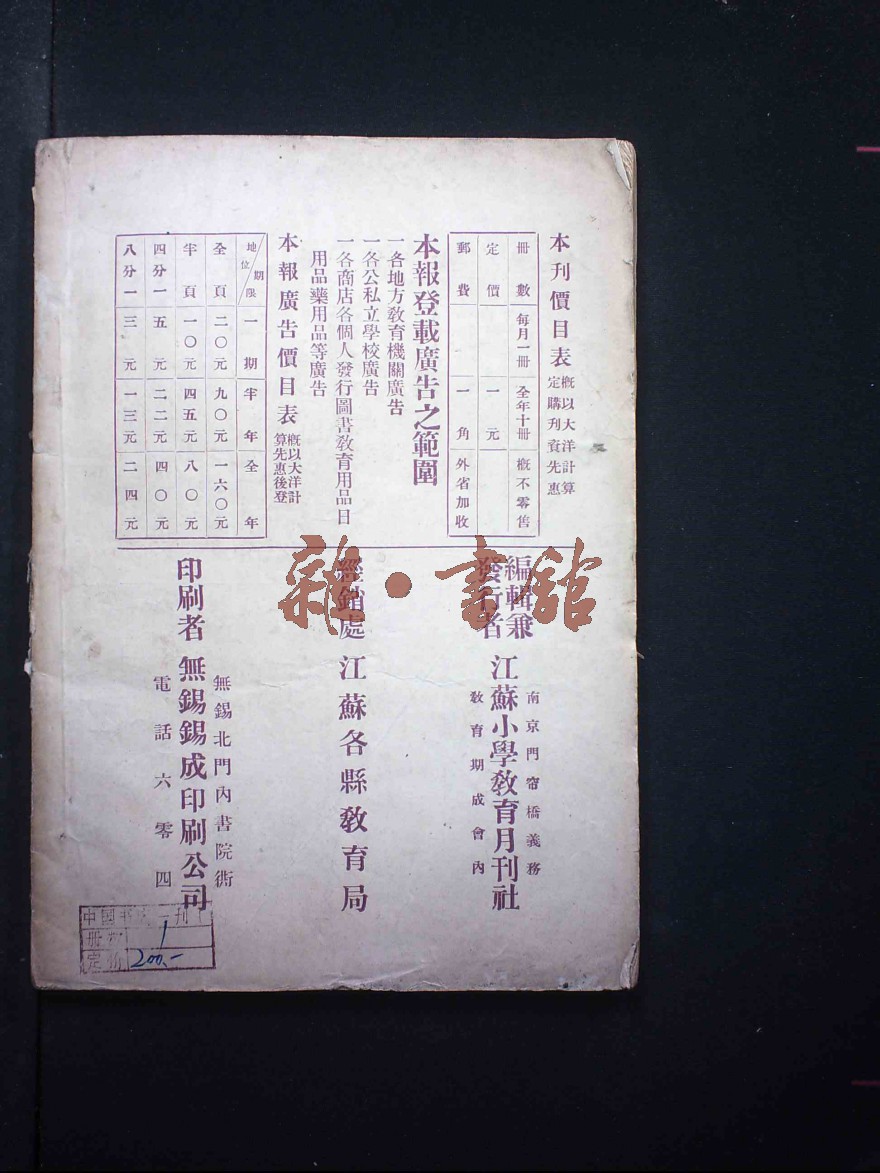 本刊價目表
概以大洋計算
定購刊資先惠
冊數 每月一冊 全年十冊 概不零售
定價 一元
郵費 一角 外省加收
本報登載廣告之範圍
一各地方教育機關廣告
一各公私立學校廣告
一各商店各個人發行圖書教育用品日
用品藥用品等廣告
本報廣告價目表
概以大洋計
算先惠後登
地位 期限 一期 半年 全年
全頁 二〇元 九〇元 一六〇元
半頁 一〇元 四五元 八〇元
四分一 五元 二二元 四〇元
八分一 三元 一三元 二四元
編輯兼
發行者
南京門帘橋義務
江蘇小學教育月刊社
教育期成會內
經銷處 江蘇各縣教育局
無錫北門內書院衖
印刷者 無錫錫成印刷公司
電話六零四
雜·書館
中国书店
册数 1
定价 200.-